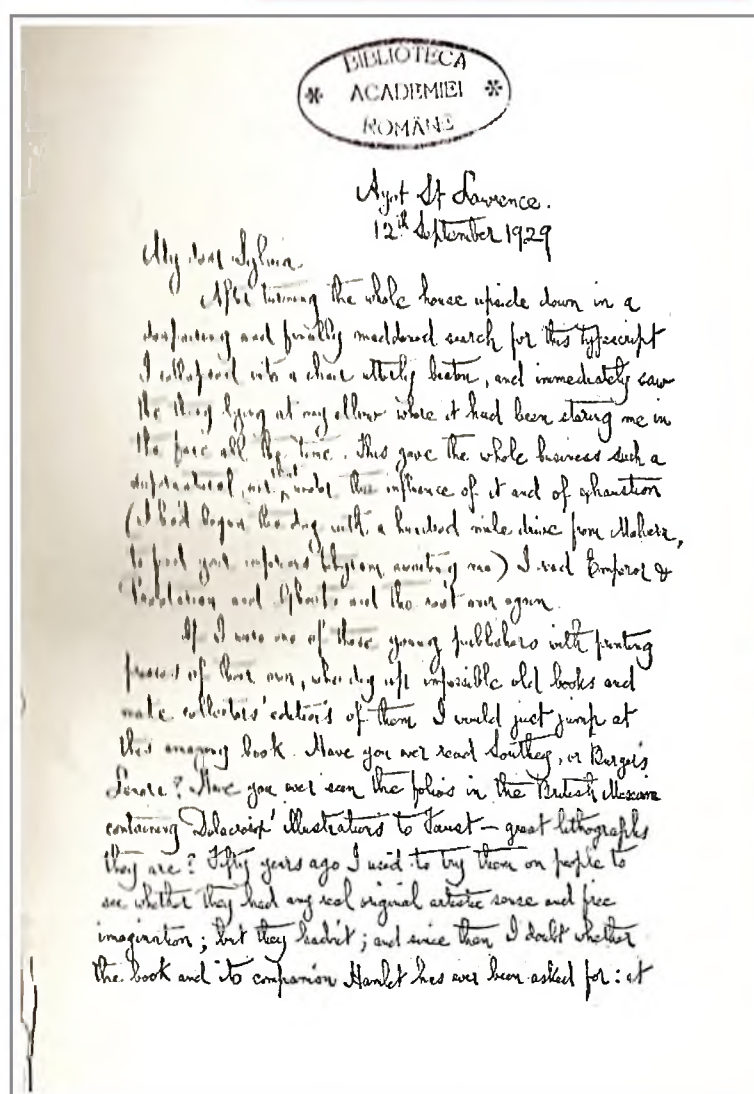 BIBLIOTECA
ACADEMIEI
ROMÂNE
Ayot St Lawrence.
12th September 1929
My dear Sylvia
After turning the whole house upside down in a
despairing and finally maddened search for this typescript
I collapsed into a chair utterly beaten, and immediately saw
the thing lying at my elbow where it had been staring me in
the face all the time. This gave the whole business such a
supernatural that under the influence of it and of exhaustion
(I had begun the day with a hundred mile drive from Malvern,
to find your telegram awaiting me) I read Emperor &
Galilean and Ghosts and the rest over again.
If I were one of those young publishers with printing
presses of their own, who dig up impossible old books and
make collectors' editions of them I would just jump at
this amazing book. Have you ever read Southey, or Burger's
Lenore? Have you ever seen the folios in the British Museum
containing Delacroix' illustrations to Faust — great lithographs
they are? Fifty years ago I used to try them on people to
see whether they had any real original artistic sense and free
imagination; but they hadn't; and since then I doubt whether
the book and its companion Hamlet has ever been asked for: at